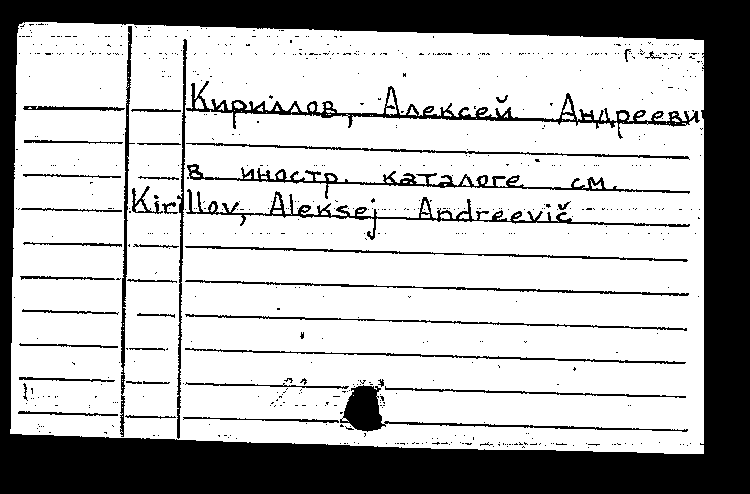 Кириллов, Алексей Андреевич
в иностр. каталоге см.
Kirillov, Aleksej Andreevič